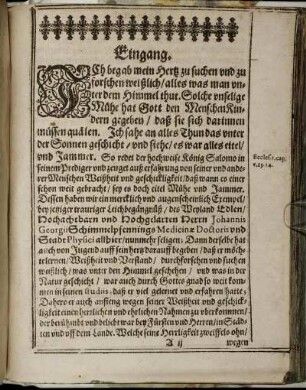 Eingang.
ICh begab mein Hertz zu suchen und zu
forschen weißlich/ alles was man un-
ter dem Himmel thut. Solche unselige
Mühe hat Gott den Menschen Kin-
dern gegeben/ daß sie sich darinnen
müssen quälen. Ich sahe an alles Thun das unter
der Sonnen geschicht/ und siehe/ es war alles eitel/
und Jammer. So redet der hochweise König Salomo in
seinem Prediger und zeuget auß erfahrung von seiner und ande-
rer Menschen Weißheit und geschickligkeit/ daß wann es einer
schon weit gebracht/ sey es doch eitel Mühe und Jammer.
Dessen haben wir ein mercklich und augenscheinlich Exempel/
bey jetziger trauriger Leichbegängnüß/ des Weyland Edlen/
Hochachtbarn und Hochgelarten Herrn Johannis
Georgii Schimmelpfennings Medicinæ Doctoris und
Stadt Physici allhier/ nunmehr seligen. Dann derselbe hat
auch von Jugend auff sein hertz darauff begeben/ daß er möch-
te lernen/ Weißheit und Verstand/ durchforschen und suchen
weißlich/ was unter den Himmel geschehen/ und was in der
Natur geschicht/ war auch durch Gottes gnad so weit kom-
men in seinen studiis, daß er viel gelernet und erfahren hatte:
Dahero er auch anfieng wegen seiner Weißheit und geschick-
ligkeit einen herrlichen und ehrlichen Nahmen zu uberkommen/
der berühmbt und beliebt war bey Fürsten und Herren/ in Städ-
ten und uff dem Lande. Welche seine Herrligkeit zweiffels ohn/
A ij
wegen
Ecclesi. 1. cap.